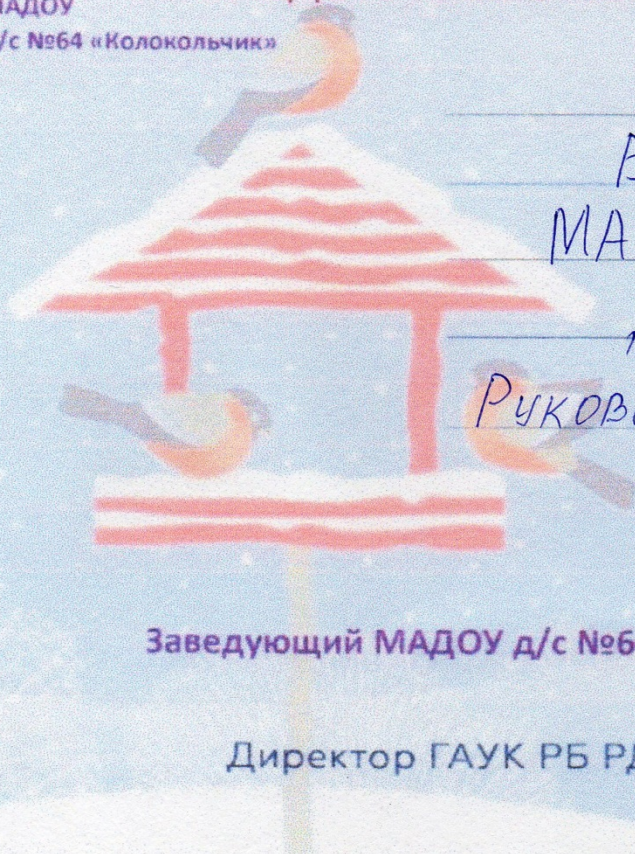 МАДОУ
/с №64 «Колокольчик»
МА
Руков
Заведующий МАДОУ д/с №6
Директор ГАУК РБ РД